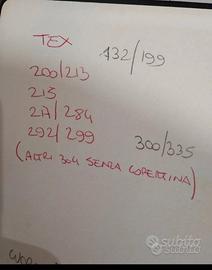 TEX
132/199
200/213
215
27/284
292/299
300/335
(ALTRI 304 SENZA COPERTINA)
subito